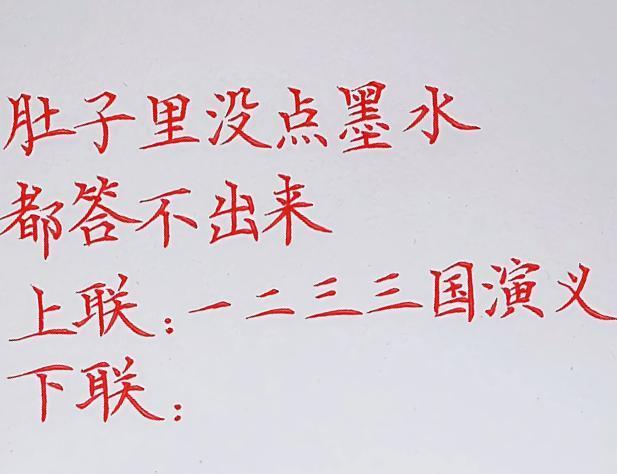 肚子里没点墨水
都答不出来
上联：一二三三国演义
下联：